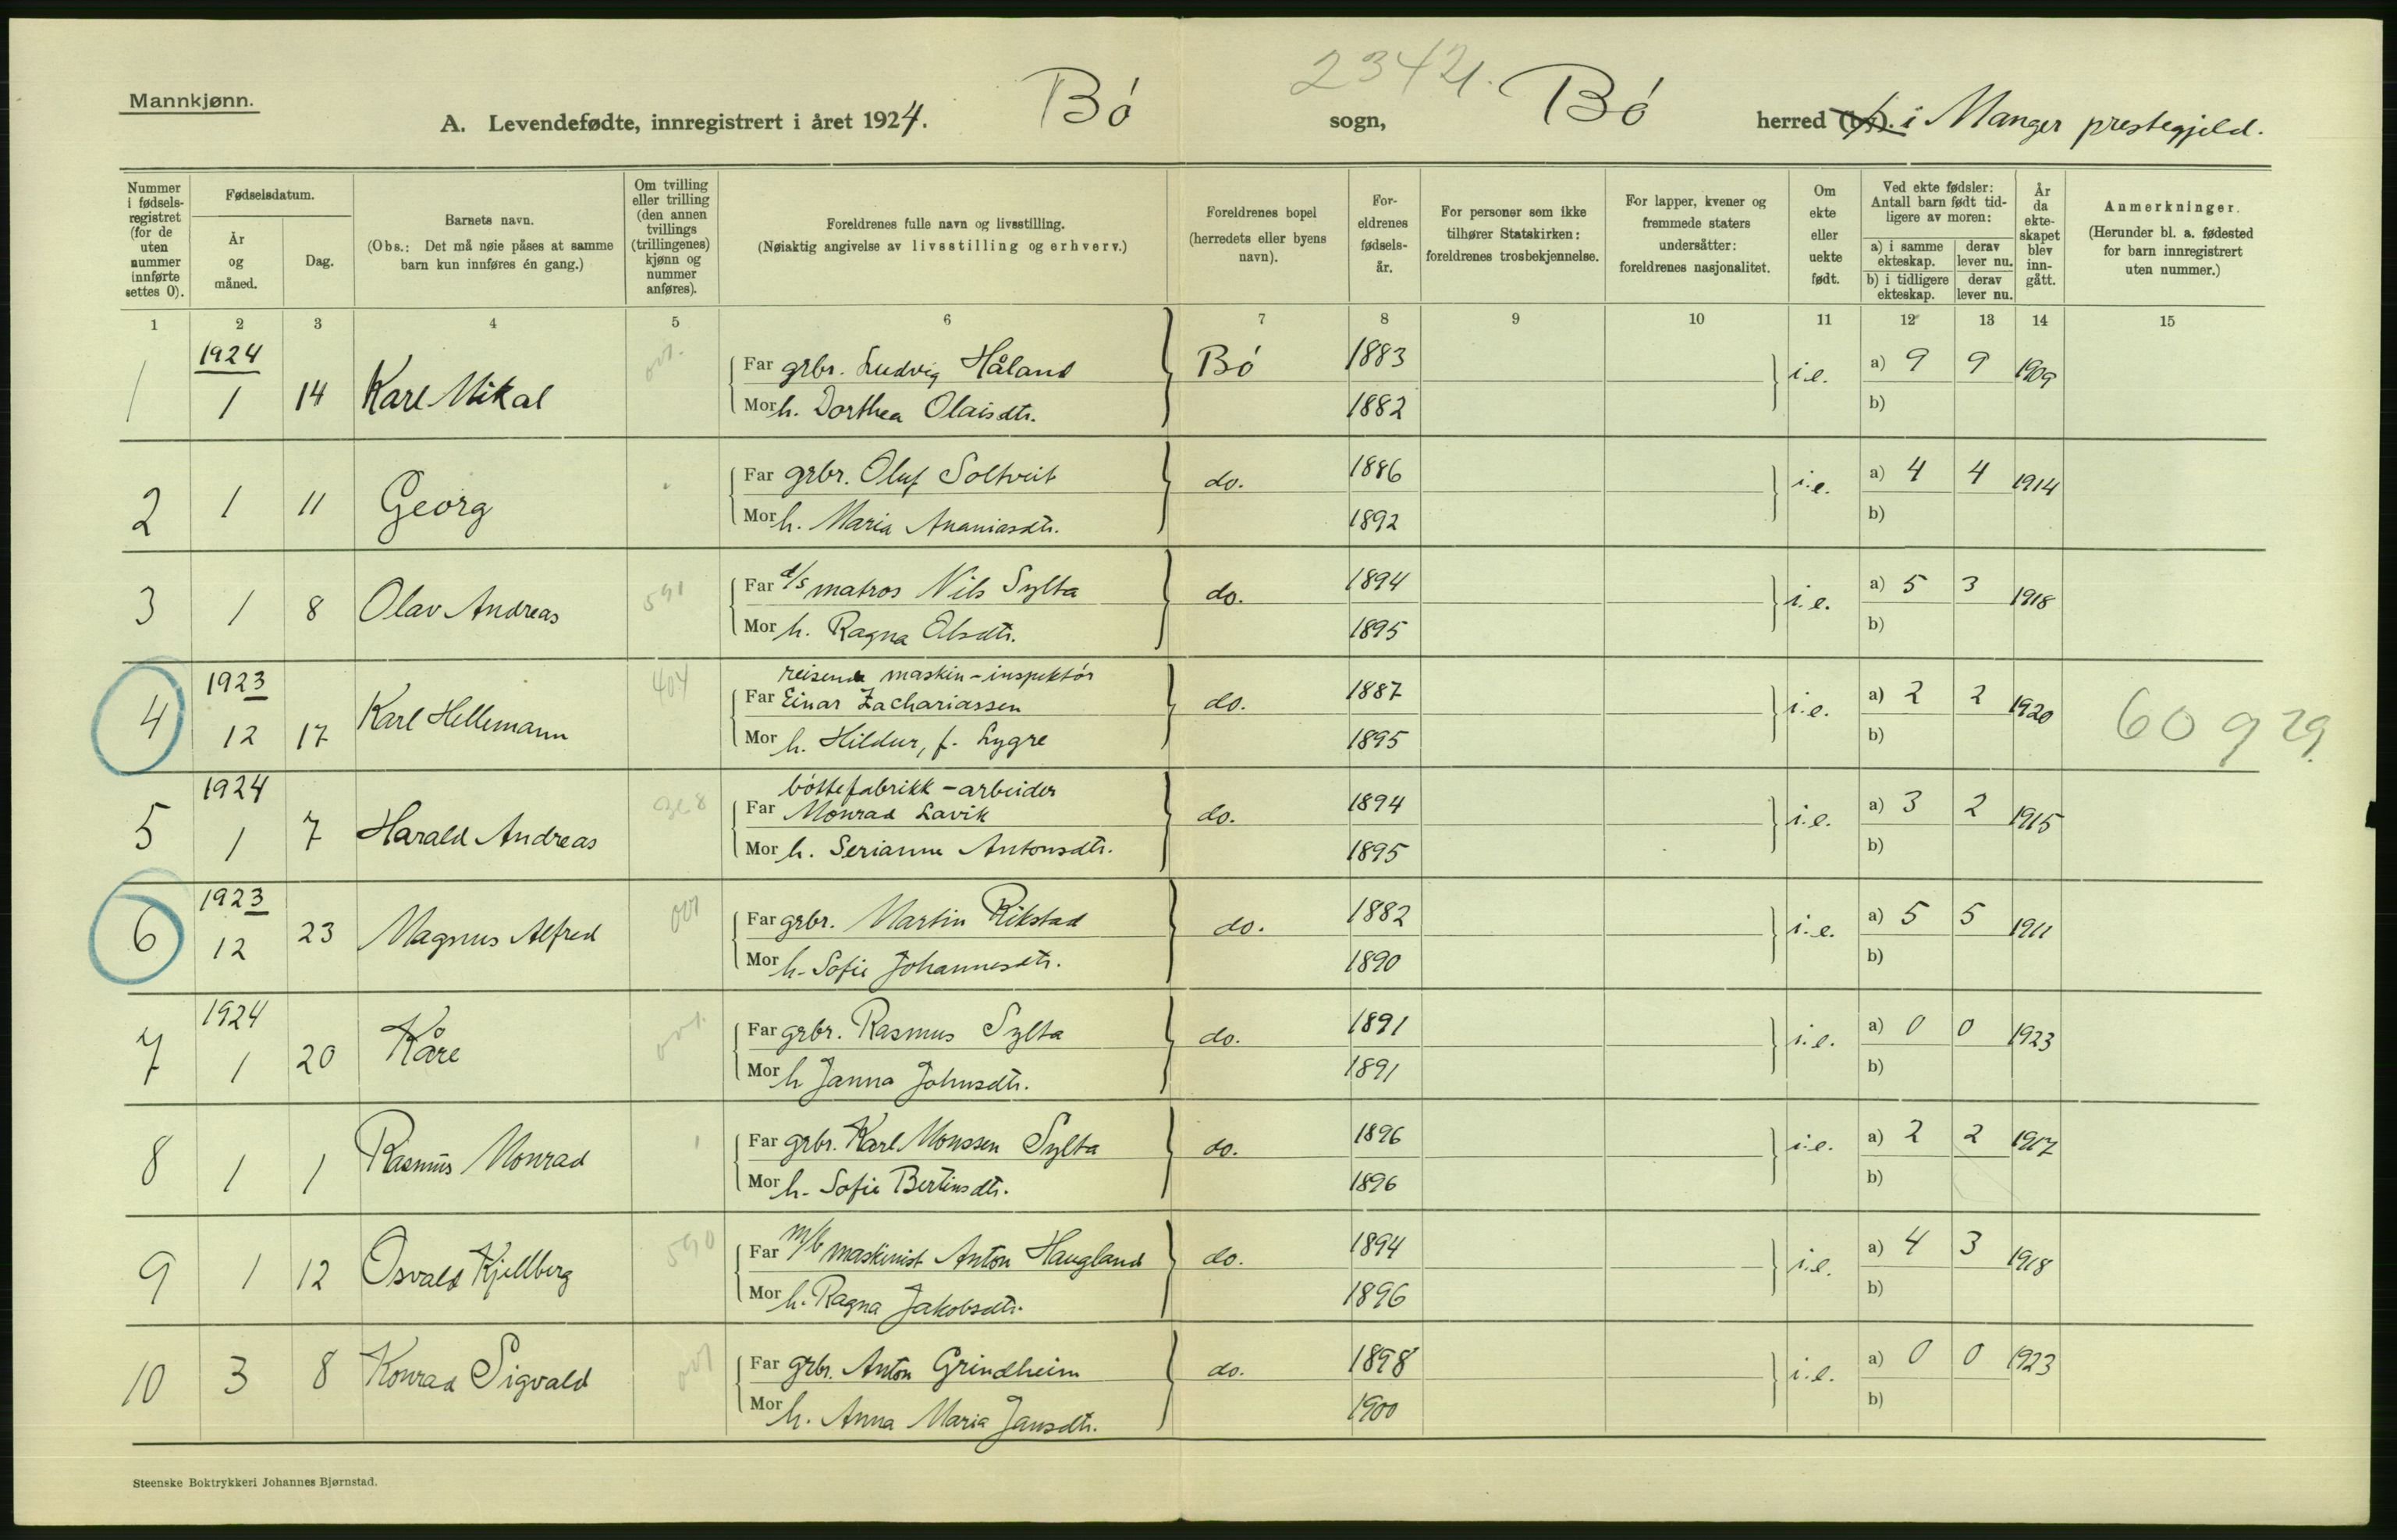 Mannkjønn.
A. Levendefødte, innregistrert i året 1924. Bó sogn, Bó herred (by). i Manger prestegjeld.
2342
Nummer i fødselsregistret (for de uten nummer innførte settes 0).
Fødselsdatum.
År og måned.
Dag.
Barnets navn.
(Obs.: Det må nøie påses at samme barn kun innføres én gang.)
Om tvilling eller trilling (den annen tvillings (trillingenes) kjønn og nummer anføres).
Foreldrenes fulle navn og livsstilling.
(Nøiaktig angivelse av livsstilling og erhverv.)
Foreldrenes bopel (herredets eller byens navn).
Foreldrenes fødselsår.
For personer som ikke tilhører Statskirken: foreldrenes trosbekjennelse.
For lapper, kvener og fremmede staters undersåtter: foreldrenes nasjonalitet.
Om ekte eller uekte født.
Ved ekte fødsler: Antall barn født tidligere av moren:
a) i samme ekteskap. derav lever nu.
b) i tidligere ekteskap. derav lever nu.
År da ekteskapet blev inngått.
Anmerkninger.
(Herunder bl. a. fødested for barn innregistrert uten nummer.)
1 2 3 4 5 6 7 8 9 10 11 12 13 14 15
1924
1 1 14 Karl Mikal 001. Far grbr. Ludvig Håland Bó 1883 i.e. a) 9 9 1909
Mor h. Dorthea Olaisdtr. 1882 b)
2 1 11 Georg Far grbr. Oluf Soltveit do. 1886 i.e. a) 4 4 1914
Mor h. Maria Ananiasdtr. 1892 b)
3 1 8 Olav Andreas 591 Far d/s matros Nils Sylta do. 1894 i.e. a) 5 3 1918
Mor h. Ragna Olsdtr. 1895 b)
1923 reisende maskin-inspektór
4 12 17 Karl Hellemann 404 Far Einar Zachariassen do. 1887 i.e. a) 2 2 1920 60929.
Mor h. Hildur, f. Lygre 1895 b)
1924 bóttefabrikk-arbeider
5 1 7 Harald Andreas Far Monrad Lavik do. 1894 i.e. a) 3 2 1915
Mor h. Serianne Antonsdtr. 1895 b)
1923
6 12 23 Magnus Alfred 001 Far grbr. Martin Rikstad do. 1882 i.e. a) 5 5 1911
Mor h. Sofie Johannesdtr. 1890 b)
1924
7 1 20 Kåre 001. Far grbr. Rasmus Sylta do. 1891 i.e. a) 0 0 1923
Mor h Janna Johnsdtr. 1891 b)
8 1 1 Rasmus Monrad Far grbr. Karl Monssen Sylta do. 1896 i.e. a) 2 2 1917
Mor h. Sofie Bertinsdtr. 1896 b)
9 1 12 Osvald Kjellberg 590 Far m/b maskinist Anton Haugland do. 1894 i.e. a) 4 3 1918
Mor h. Ragna Jakobsdtr. 1896 b)
10 3 8 Konrad Sigvald 001 Far grbr. Anton Grindheim do. 1898 i.e. a) 0 0 1923
Mor h. Anna Maria Jansdtr. 1900 b)
Steenske Boktrykkeri Johannes Bjørnstad.